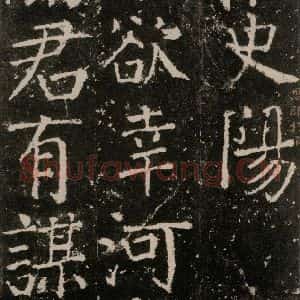 史陽
欲幸河
君有謀
Shufawang.Cn